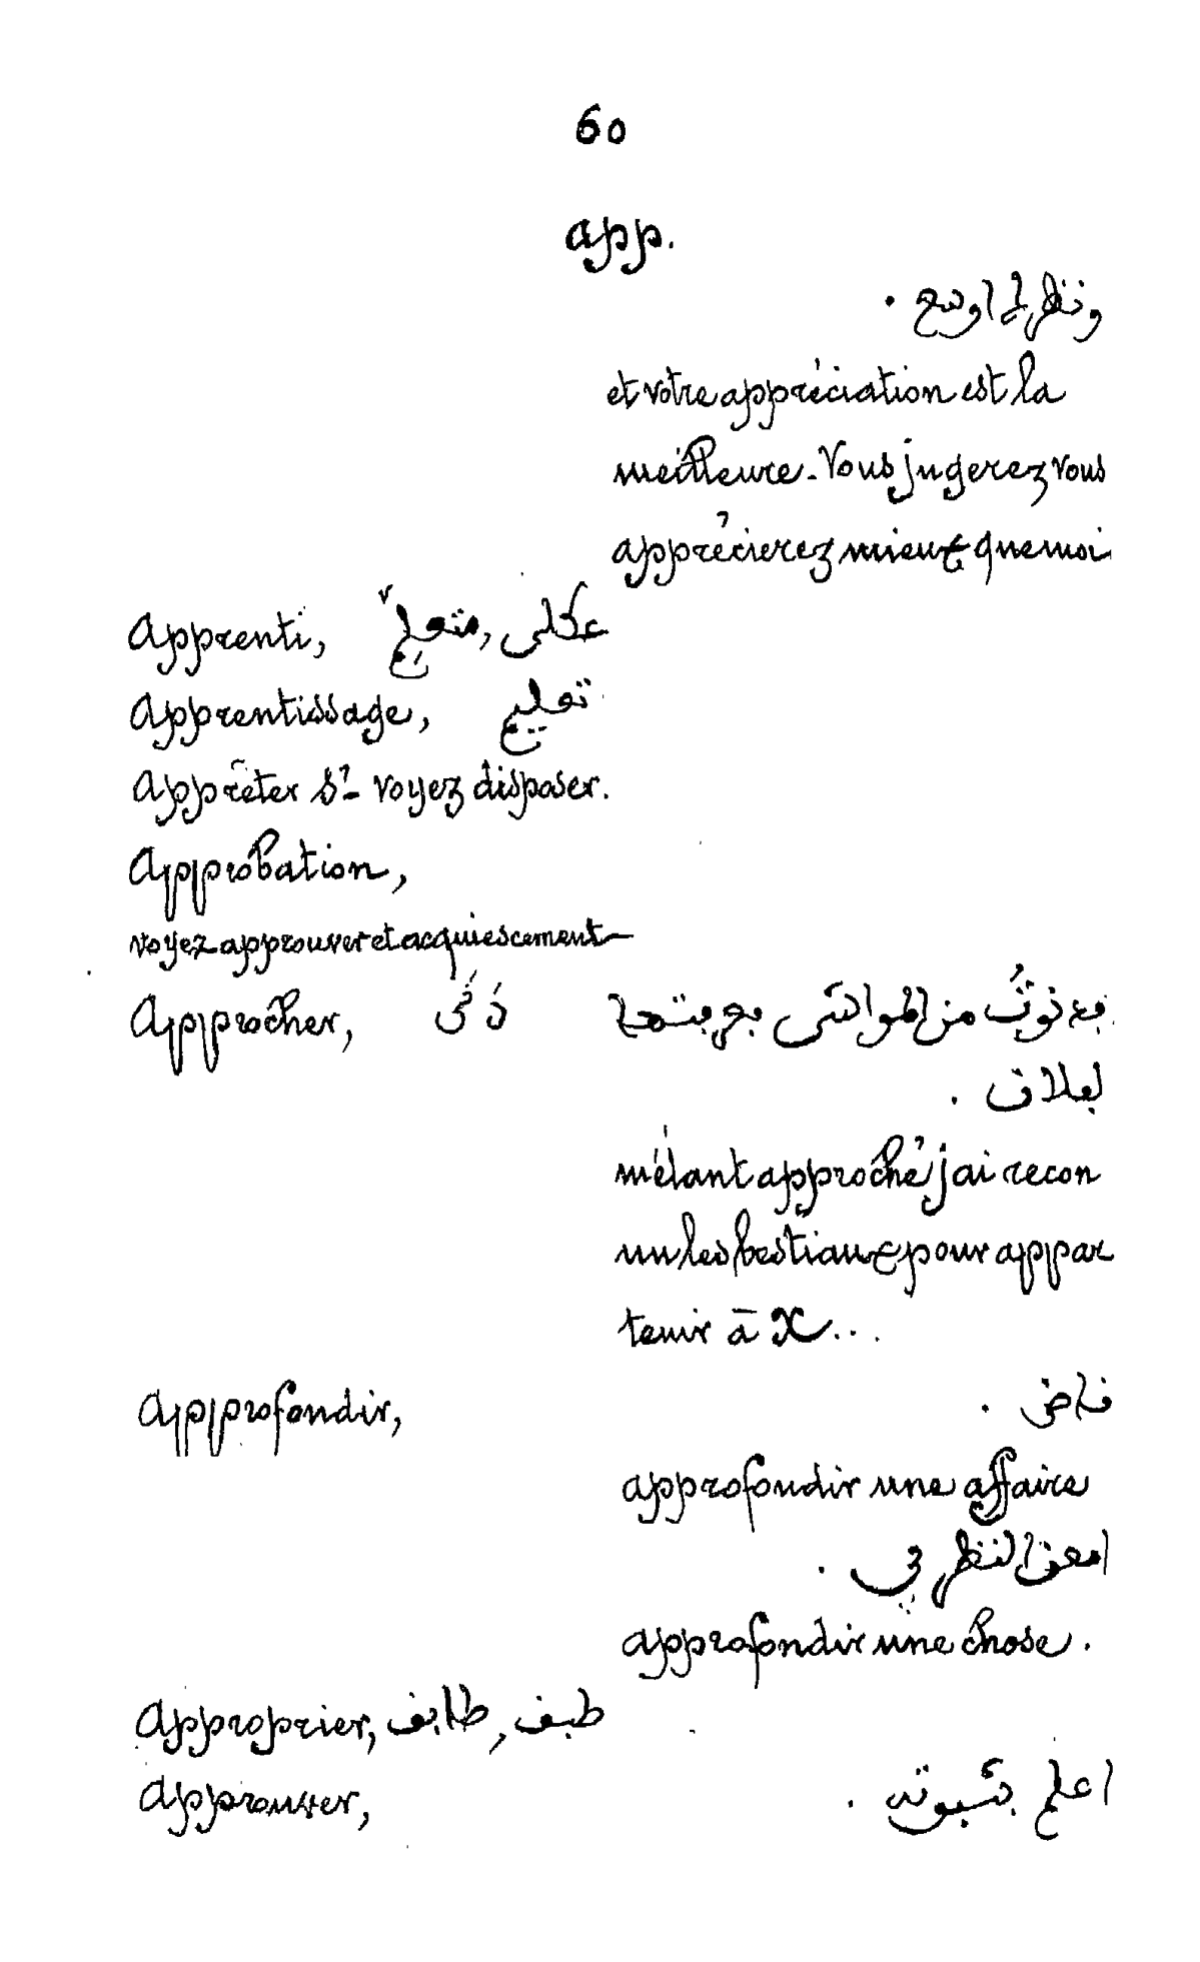 60
app.
ونظركم اوسع .
et votre appréciation est la
meilleure. Vous jugerez vous
apprécierez mieux que moi
Apprenti, متعلم , 
Apprentissage, تعليم
Apprêter s'- voyez disposer.
Approbation,
voyez approuver et acquiescement
Approcher, دنى
فدنوتُ من المواشى فعرفتها
لفلان .
m'étant approché j'ai recon
nu les bestiaux pour appar
tenir à X...
Approfondir, خاض .
approfondir une affaire
امعن النظر في .
approfondir une chose.
Approprier, طابق , طبق
Approuver, اعلم بثبوته .